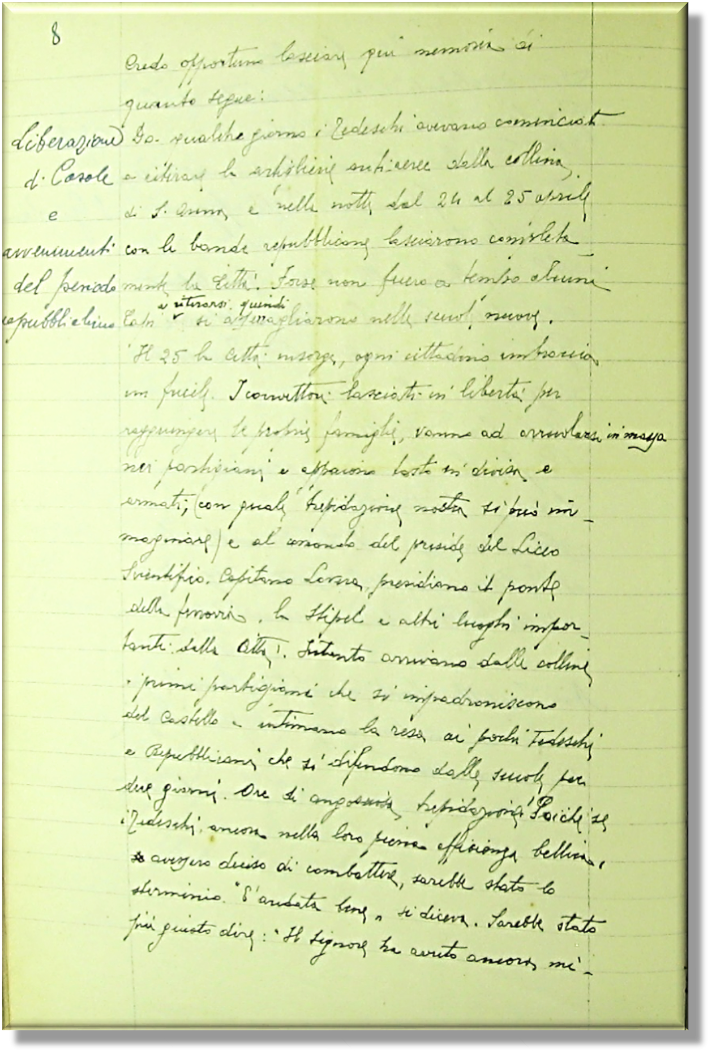 8
Credo opportuno lasciare qui memoria di
quanto segue:
Liberazione
di Casale
e
avvenimenti
del periodo
repubblicano
Da qualche giorno i Tedeschi avevano cominciato
a ritirare le artiglierie antiaeree dalla collina
di S. Anna, e nella notte dal 24 al 25 aprile
con le bande repubblicane lasciarono completa-
mente la Città. Forse non furono a tempo alcuni
a ritirarsi, quindi
si asserragliarono nelle scuole nuove.
Il 25 la città insorge, ogni cittadino imbraccia
un fucile. I convittori lasciati in libertà per
raggiungere le proprie famiglie, vanno ad arruolarsi in massa
nei partigiani e appaiono tosto in divisa e
armati, (con quale trepidazione nostra si può im-
maginare) e al comando del preside del Liceo
Scientifico, Capitano Lavera, presidiano il ponte
della ferrovia, la Stipel e altri luoghi impor-
tanti della Città. Intanto arrivano dalle colline
i primi partigiani che si impadroniscono
del Castello e intimano la resa ai pochi Tedeschi
e Repubblicani che si difendono dalle scuole per
due giorni. Ore di angosciosa trepidazione! Poichè se
i Tedeschi, ancora nella loro piena efficienza bellica,
avessero deciso di combattere, sarebbe stato lo
sterminio. "E' andata bene" si diceva. Sarebbe stato
più giusto dire: "Il Signore ha avuto ancora mi-